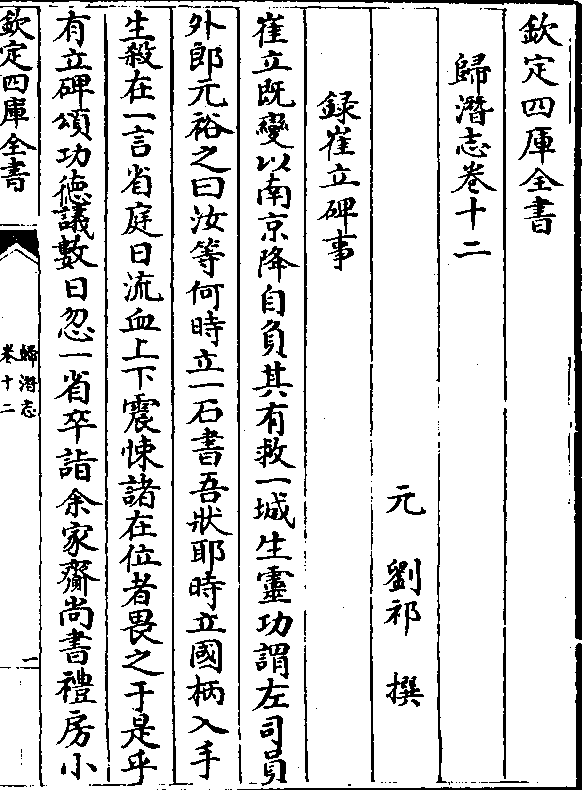 欽定四庫全書
歸潛志卷十二
元 劉祁 撰
録崔立碑事
崔立既變以南京降自負其有救一城生靈功謂左司員
外郎元裕之曰汝等何時立一石書吾狀耶時立國柄入手
生殺在一言省庭日流血上下震悚諸在位者畏之于是乎
有立碑頌功德議數日忽一省卒詣余家齎尚書禮房小
欽定四庫全書
歸潛志
卷十二
一